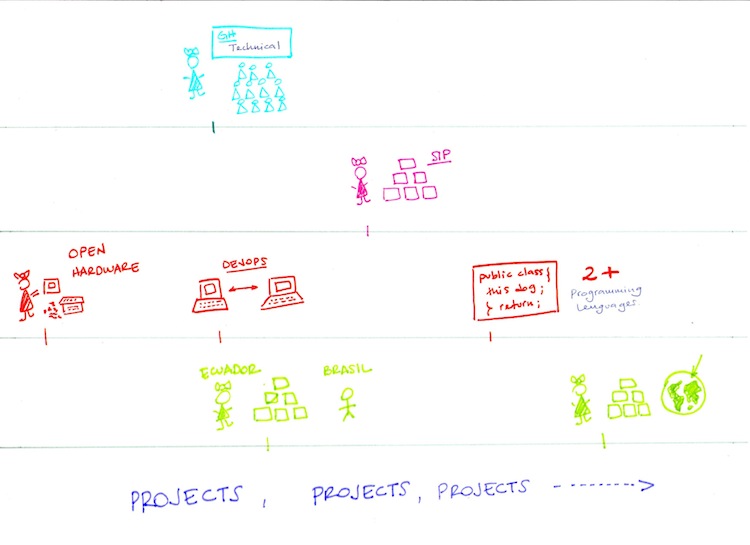 GH
Technical
STP
OPEN
HARDWARE
DEVOPS
public class {
this dog;
} return;
2+
Programming
Languages
ECUADOR
BRASIL
PROJECTS, PROJECTS, PROJECTS